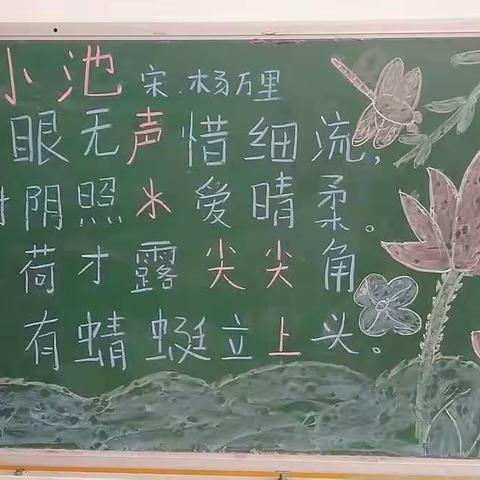 小池 宋.杨万里
眼无声惜细流,
阴照水爱晴柔。
荷才露尖尖角
有蜻蜓立上头。